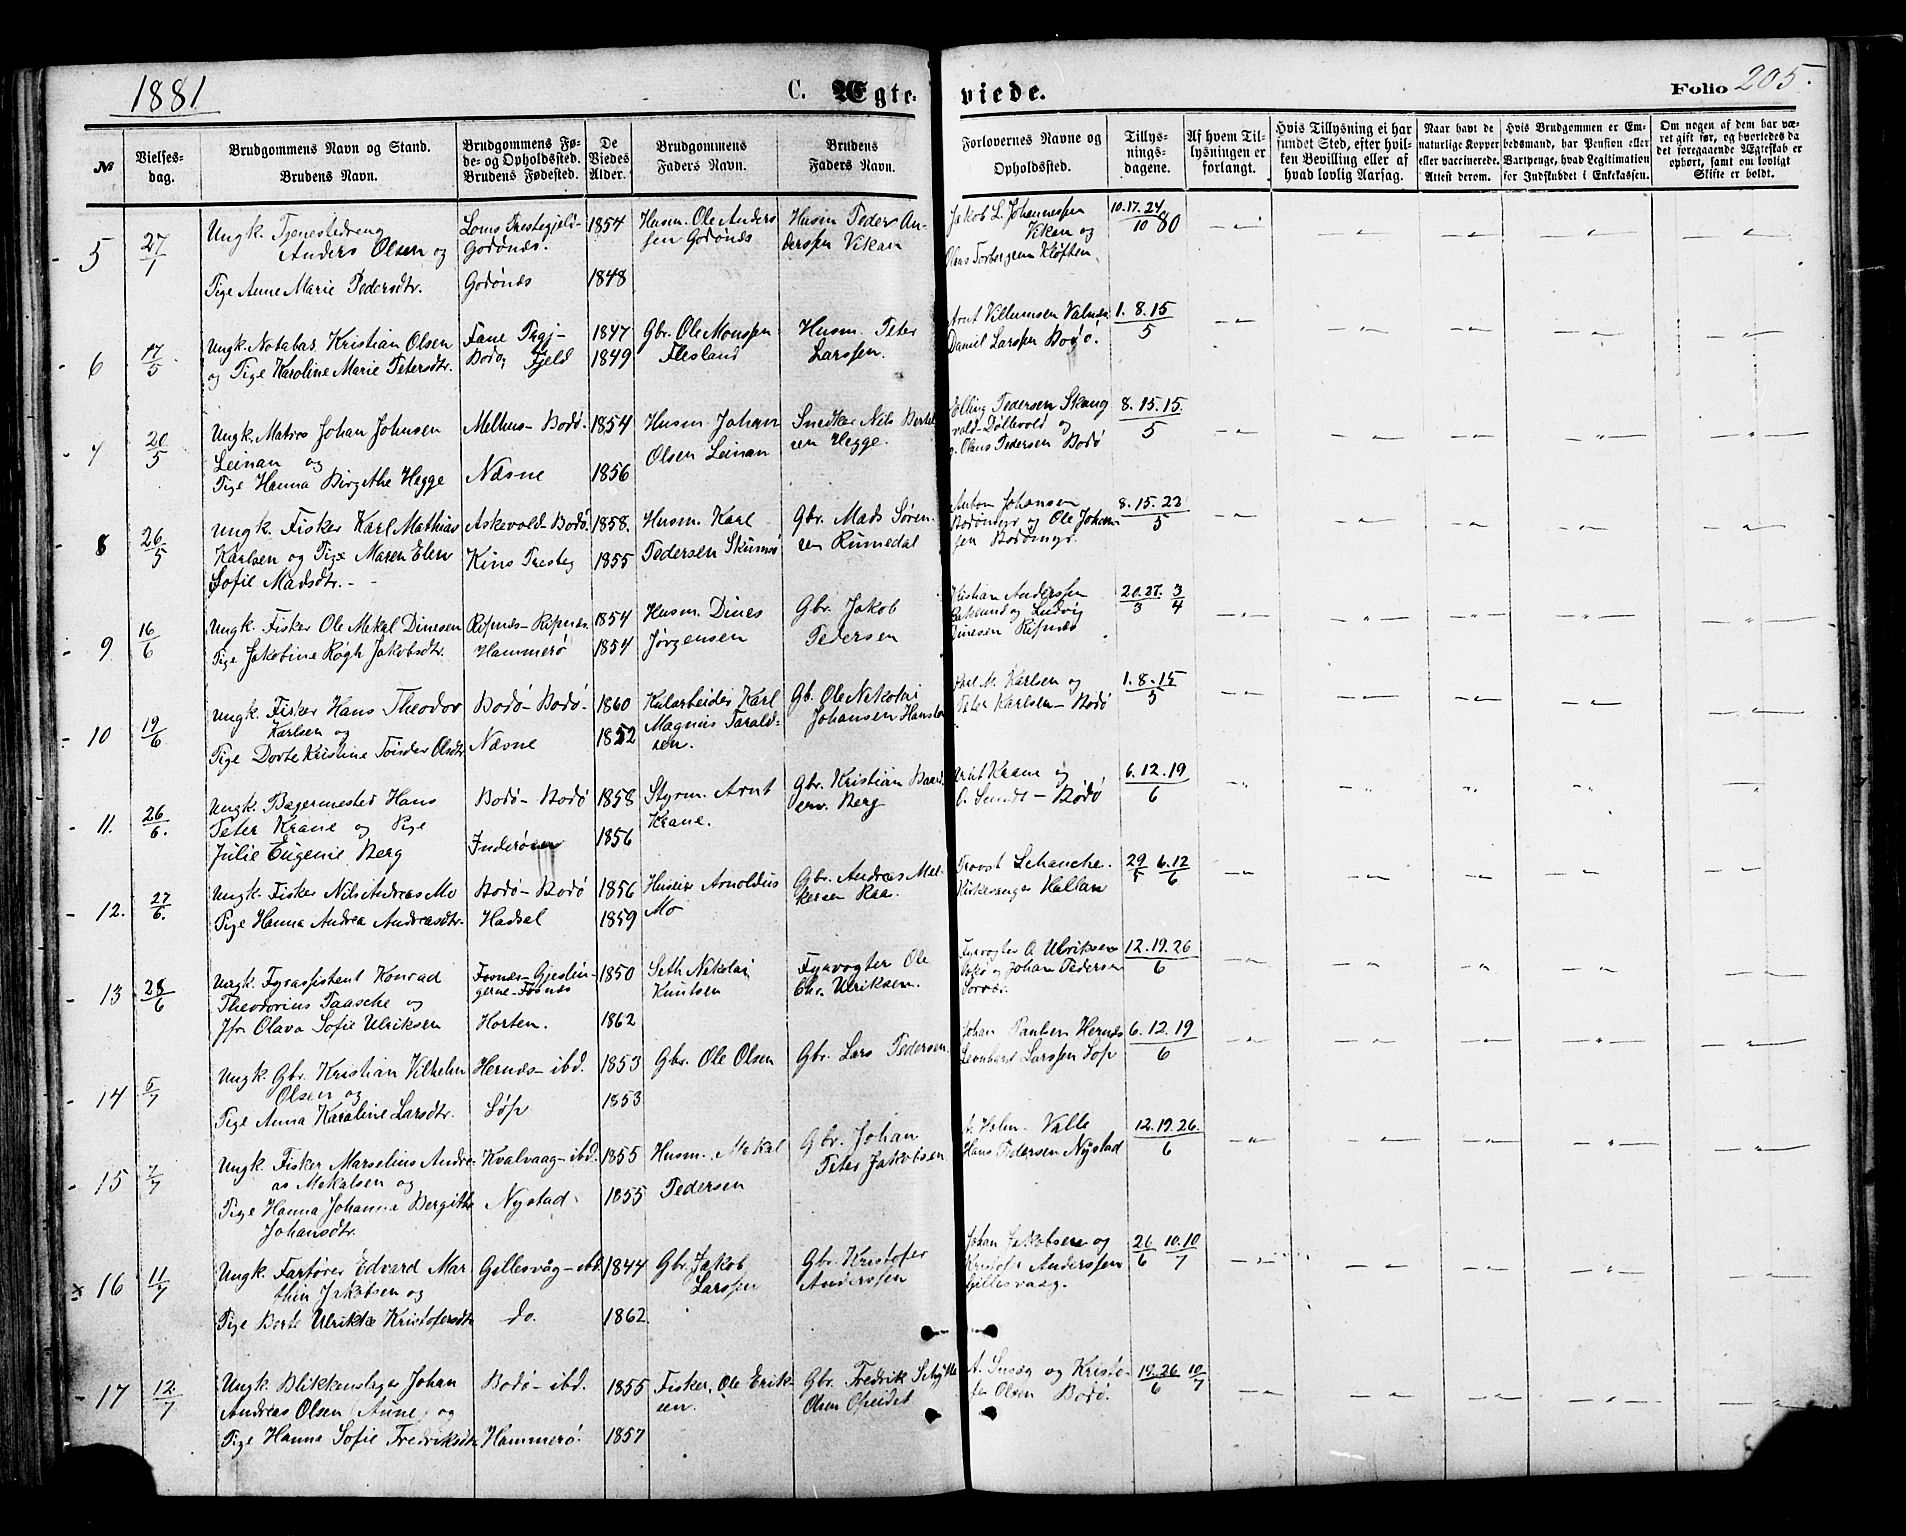 1881
C. Ægteviede.
Folio 205.
№
Vielsesdag.
Brudgommens Navn og Stand.
Brudens Navn.
Brudgommens Føde- og Opholdssted.
Brudens Fødested.
De Viedes Alder.
Brudgommens Faders Navn.
Brudens Faders Navn.
Forlovernes Navne og Opholdssted.
Tillysningsdagene.
Af hvem Tillysningen er forlangt.
Hvis Tillysning ei har fundet Sted, efter hvilken Bevilling eller af hvad lovlig Aarsag.
Naar havt de naturlige Kopper eller vaccinerede. Attest derom.
Hvis Brudgommen er Embedsmand, har Pension eller Vartpenge, hvad Legitimation for Indskuddet i Enkekassen.
Om nogen af dem har været gift før, og hvorledes da det foregaaende Ægteskab er ophørt, samt om lovligt Skifte er holdt.
5
27/1
Ungk. Tjenestedreng
Anders Olsen og
Pige Anne Marie Pedersdtr.
Loms Prestegjeld-
Godønæs.
Godønæs
1854
1848
Husm. Ole Anders
sen Godønæs
Husm Peder An-
derssen Vikan
Jakob L. Johannessen
Vikan og
Kløften.
10. 17. 24/10 80
6
17/5
Ungk. Kristian Olsen
og Pige Karoline Marie Petersdtr.
Fane Prgj-
Bodø Fjeld
1847
1849
Gbr. Ole Monssen
Flesland
Husm. Peter
Larssen.
Arnt Villumsen
Daniel Larssen Bodø.
1. 8. 15/5
7
20/5
Ungk. Matros Johan Johnsen
Leinan og
Pige Hanna Birgethe Hegge
Melhus - Bodø.
Næsne
1854
1856
Husm. Johan
Olsen Leinan
Snedker Nils Bertel
sen Hegge.
Elling Pedersen Skang
vold og
Olaus Pedersen Bodø
8. 15. 15./5
8
26/5
Ungk. Fisker Karl Mathias
Karlsen og Pige Maren Elen
Sofie Madsdtr.
Askevold - Bodø.
Kins Presteg
1858.
1855
Husm. Karl
Pedersen
Gbr. Mads Søren
sen Rumedal
Anton Johansen
Bodømyr og Ole Johan
sen Bodømyr.
8. 15. 22/5
9
16/6
Ungk. Fisker Ole Mekal Dinesen
Pige Jakobine Røgh Jakobsdtr.
Ripnæs - Ripnæs.
Hammerø
1854
1854
Husm. Dines
Jørgensen
Gbr. Jakob
Pedersen
Kristian Anderssen
og Ludvig
Dinesen Ripnæs
20. 27./3 3/4
10
19/6
Ungk. Fisker Hans Theodor
Karlsen og
Pige Dorte Kristine Tønder Olsdtr
Bodø - Bodø -
Næsne
1860
1852
Kularbeider Karl
Magnus Tarald-
sen.
Gb. Ole Nikolai
Johansen
Karl M. Karlsen og
Peter Karlsen - Bodø
1. 8. 15/5
11.
26/6.
Ungk. Bagermester Hans
Peter Krane og Pige
Julie Eugenie Berg
Bodø - Bodø
Inderøen
1858
1856
Styrm. Arnt
Krane.
Gbr. Kristian
Berg
Arnt Krane og
O. Sundt - Bodø
6. 12. 19/6
12.
27/6.
Ungk. Fisker Nils Andreas Mo
Pige Hanna Andrea Andreasdtr.
Bodø - Bodø
Hadsel
1856
1859
Arnoldus
Mo
Gbr. Andreas Mel-
kersen Raa.
Provst Schanche.
Kirkesanger Hallan
29/5 6.12/6
13
28/6
Ungk. Fyrassistent Konrad
Theodorius Paasche og
Jfr. Olava Sofie Ulriksen
Fosnæs - Gjeslin-
gerne - Fosnæs
Horten.
1850
1862
Seth Nikolai
Knutsen
Fyrvogter Ole
Chr. Ulriksen.
Fyrvogter O. Ulriksen
og Johan Pedersen
12. 19. 26/6
14
5/7
Ungk. Gbr. Kristian Vilhelm
Olsen og
Pige Anna Karoline Larsdtr.
Hernæs - ibd.
Løp
1853
1853
Gbr. Ole Olsen
Gbr. Lars Pedersen
Johan Paulsen Hernæs
Leonhard Larssen Løp
6. 12. 19/6
15
7/7
Ungk. Fisker Marselius Andre
as Mekalsen og
Pige Hanna Johanna Bergitte
Johansdtr.
Kvalvaag - ibd.
Nystad
1855
1855
Husm. Mekal
Pedersen
Gbr. Johan
Peter Jakobsen
A. Holm - Valle
Hans Pedersen Nystad
12. 19. 26./6
16
11/7
Ungk. Farfører Edvard Mar
thin Jakobsen og
Pige Berte Ulrikke Kristofersdtr
Gillesvåg - ibd.
do.
1844
1862
Gbr. Jakob
Larssen
Gbr. Kristofer
Anderssen
Johan Jakobsen og
Kristofer Anderssen
Gillesvaag.
26/6 10. 10/7
17
12/7
Ungk. Blikkenslager Johan
Andreas Olsen (Aune) og
Pige Hanna Sofie Fredriksdtr
Bodø - ibd.
Hammerø.
1855
1857
Fisker. Ole Erik-
sen.
Gbr. Fredrik Schytte
Olsen Opeidet
og Kristo-
fer Olsen Bodø.
19. 26/6 10/7